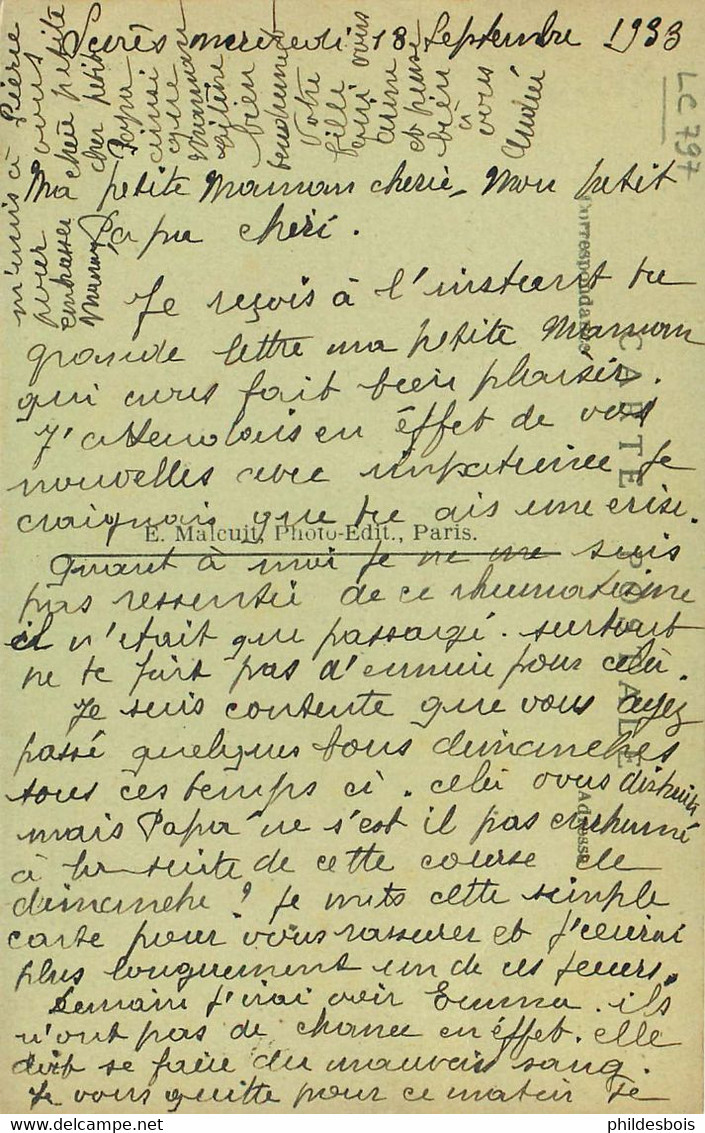 mercredi 18 Septembre 1933
LC 797
Ma petite Maman cherie. Mon petit
Papa cheri.
Je reçois à l'instant ta
grande lettre ma petite Maman
qui nous fait bien plaisir.
J'attendais en éffet de vos
nouvelles avec impatience je
craignais que tu ais une crise.
Quant à moi je ne me suis
pas ressentie de ce rhumatisme
il n'etait que passagé. surtout
ne te fais pas d'ennui pour cela.
Je suis contente que vous ayez
passé quelques bons dimanches
tous ces temps ci. cela vous distrait
mais Papa ne s'est il pas enrhumé
à la suite de cette course de
dimanche? Je mets cette simple
carte pour vous rassurer et j'ecrirai
plus longuement un de ces jours.
Demain j'irai voir Emma. ils
n'ont pas de chance en éffet. elle
doit se faire du mauvais sang.
Je vous quitte pour ce matin je
m'unis à Pierre
pour vous
embrasser ma chère petite
Maman cher petit
Papa
ainsi
que
Maman
bien
tendrement
Votre
fille
qui vous
aime
et pense
bien
à
vous
E. Malcuit, Photo-Edit., Paris.
CARTE POSTALE
Correspondance
Adresse
phildesbois